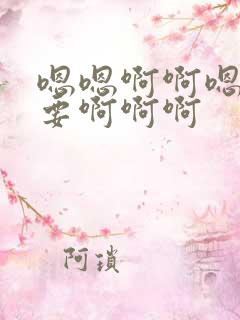 嗯嗯啊啊嗯
要啊啊啊
阿瑣